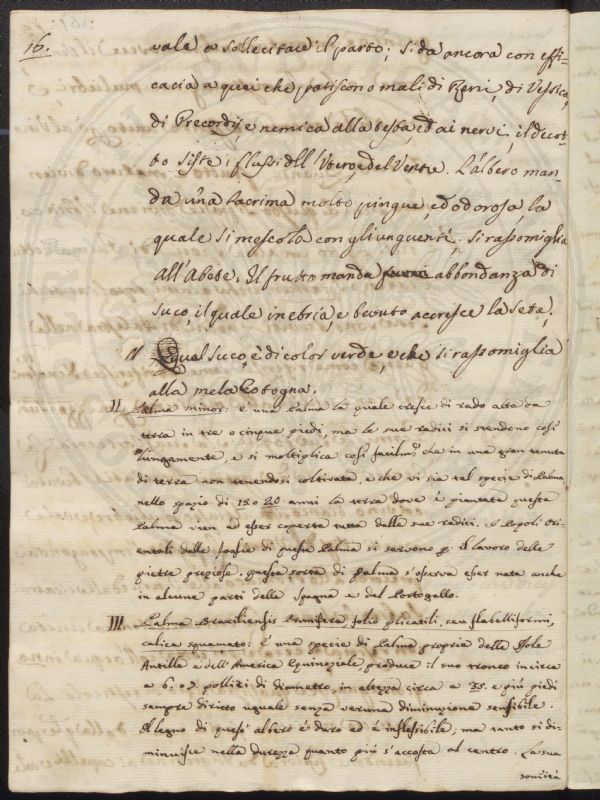 16.
vale a sollecitare il parto; si da ancora con effi-
cacia a quei che patiscono mali di Reni, di Vessica,
di Precordij, e nemica alla testa, ed ai nervi; il decot-
to siste i flussi dell'Utero, e del Ventre. L'albero man-
da una lacrima molto pingue, ed odorosa, la
quale si mescola con gli unguenti; si rassomiglia
all'Abete. Il frutto manda abbondanza di
suco, il quale inebria, e bevuto accresce la sete;
Il qual suco è di color verde, e che si rassomiglia
alla mela Cotogna.
II. Palma minor: è una Palma la quale cresce di rado alta da
terra in tre o cinque piedi, ma le sue radici si stendono così
lungamente, e si moltiplica così facilmte, che in una gran tenuta
di terra non venendosi coltivata, e che vi sia tal specie di Palma,
nello spazio di 15 o 20 anni la terra dove è piantata questa
Palma vien ad esser coperta tutta dalle sue radici. I Popoli Ori-
entali delle foglie di questa Palma si servono p. il lavoro delle
pietre preziose. questa sorta di Palma s'osserva esser nata anche
in alcune parti della Spagna e del Portogallo.
III. Palma Brasiliensis Prunifera, folio plicatili, seu flabelliformi,
calice squamato: È una specie di Palma propria delle Isole
Antille e dell'America Equinoziale, produce il suo tronco in circa
a 6. o 7. pollici di diametro, in altezza circa a 35. e più piedi
sempre diritto uguale senza veruna diminuzione sensibile.
Il legno di quest'albero è duro ed è inflessibile; ma tanto si di-
minuisce nella durezza quanto più s'accosta al centro. La sua